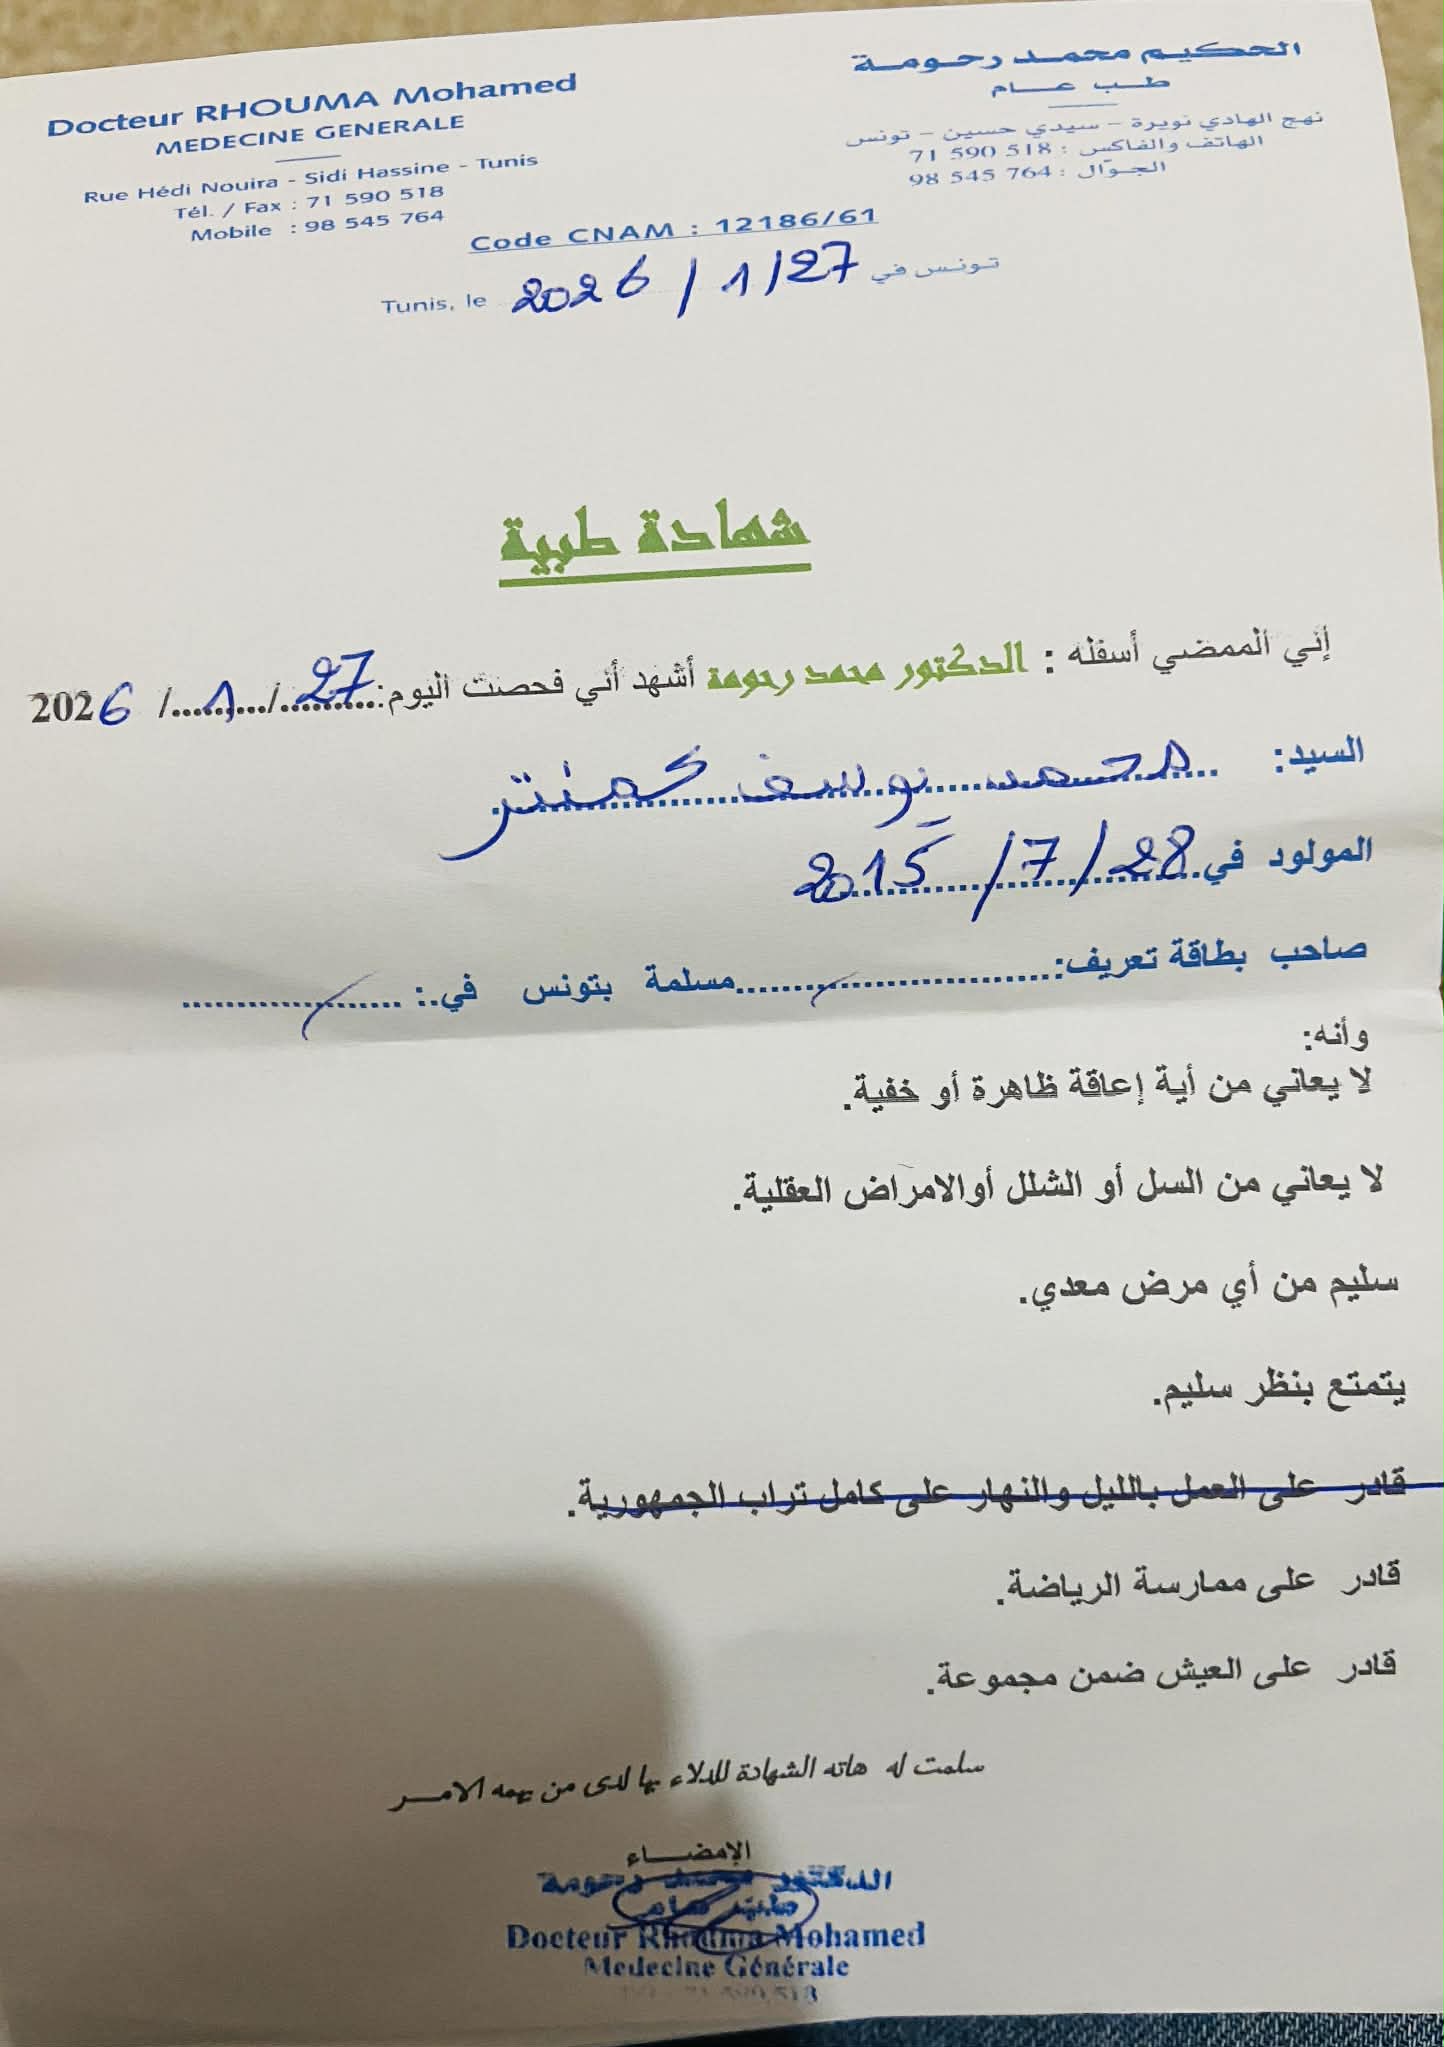 Docteur RHOUMA Mohamed
MEDECINE GENERALE
Rue Hédi Nouira - Sidi Hassine - Tunis
Tél. / Fax : 71 590 518
Mobile : 98 545 764
الحكيم محمد رحومة
طب عام
نهج الهادي نويرة - سيدي حسين - تونس
الهاتف والفاكس : 518 590 71
الجوّال : 764 545 98
Code CNAM : 12186/61
Tunis, le 2026 / 1 / 27 تونس في
شهادة طبية
إني الممضي أسفله : الدكتور محمد رحومة أشهد أني فحصت اليوم: 27 / 1 / 2026
السيد: محمد يوسف
المولود في 28 / 7 / 2015
صاحب بطاقة تعريف: مسلمة بتونس في :
وأنه:
لا يعاني من أية إعاقة ظاهرة أو خفية.
لا يعاني من السل أو الشلل أوالامراض العقلية.
سليم من أي مرض معدي.
يتمتع بنظر سليم.
قادر على العمل بالليل والنهار على كامل تراب الجمهورية.
قادر على ممارسة الرياضة.
قادر على العيش ضمن مجموعة.
سلمت له هاته الشهادة للدلاء بها لدى من يهمه الامر
الإمضاء
الدكتور محمد رحومة
طبّ عام
Docteur Rhouma Mohamed
Medecine Générale
71 590 518